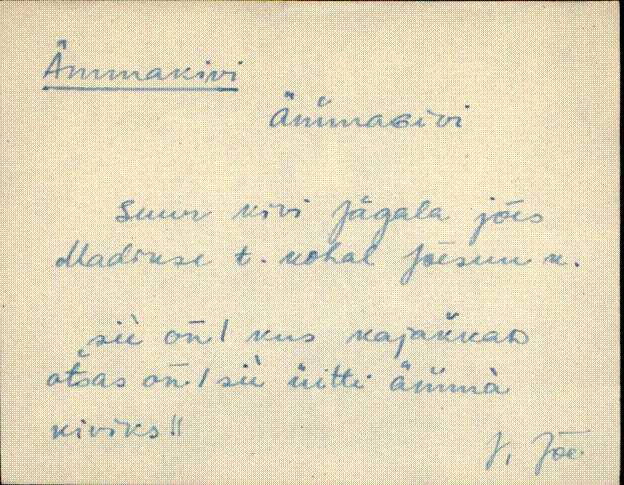 Ämmakivi
ämmaɢivi
Suur kivi Jägala jões
Madikse t. kohal Jõesuu k.
sii on / kus kajakkaᴅ
otsas on / sii üitti ämmä
kiviks //
J. Jõe.